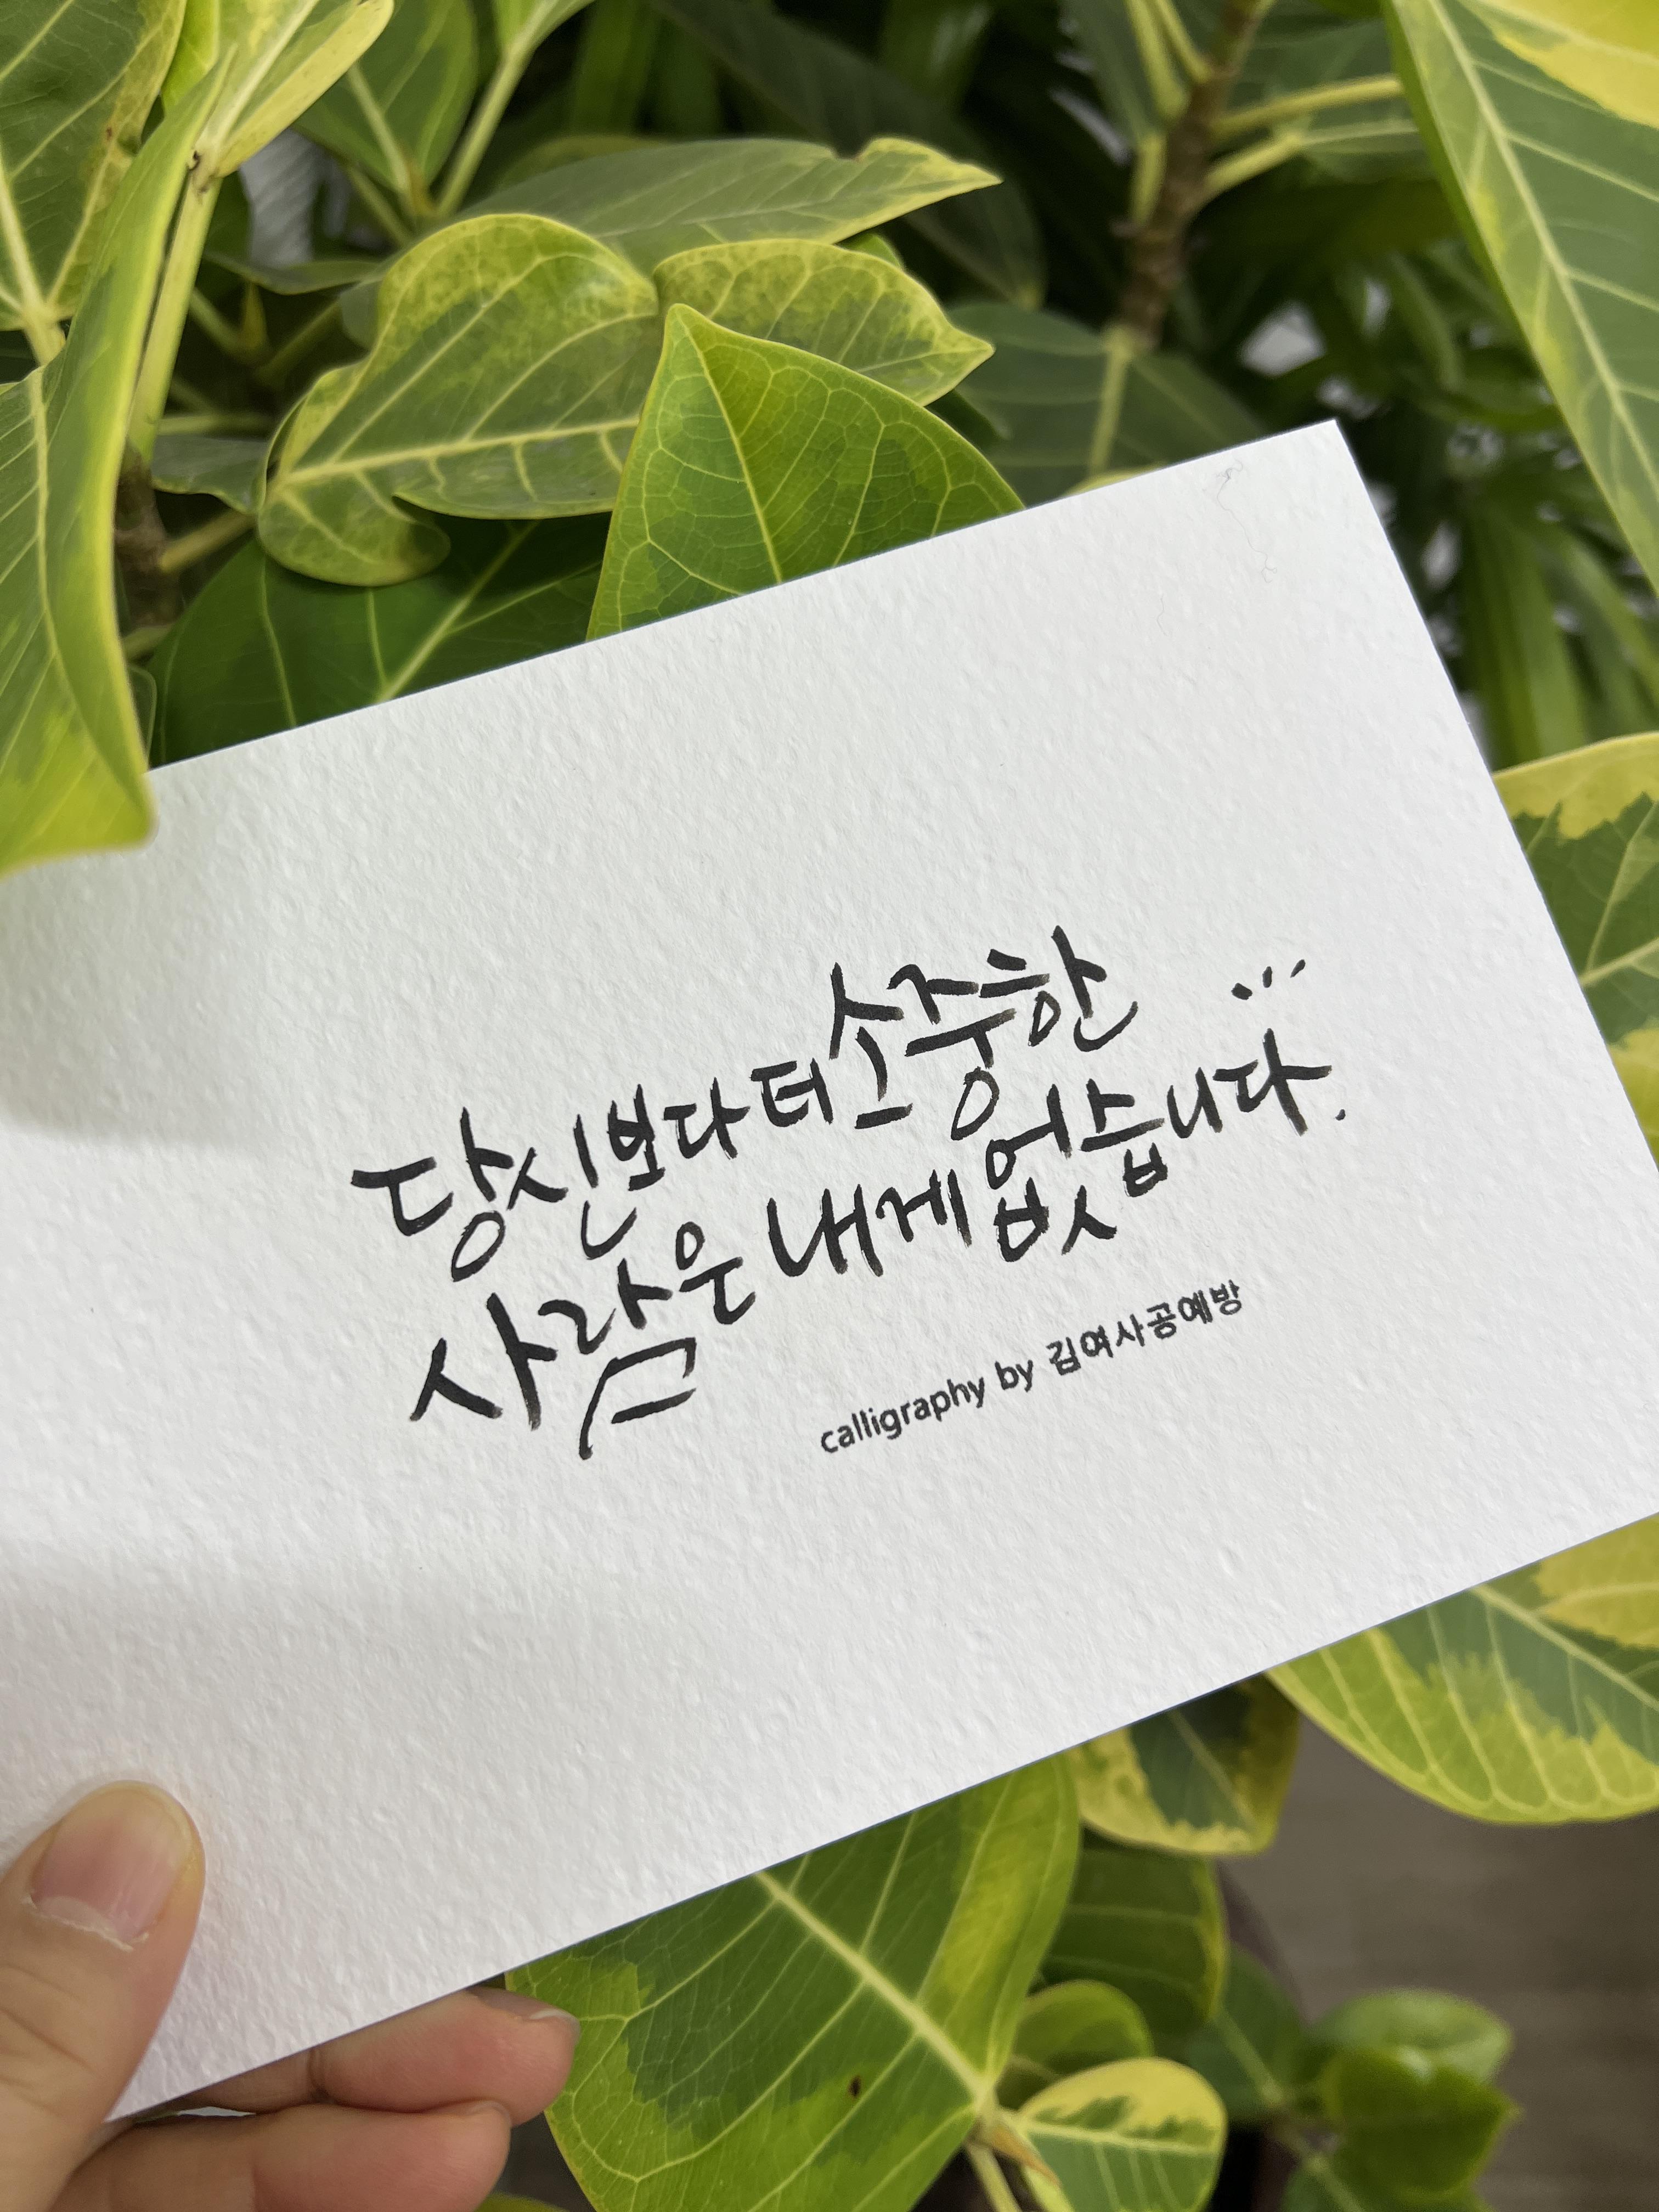 당신보다 더 소중한
사람은 내게 없습니다.
calligraphy by 김여사공예방